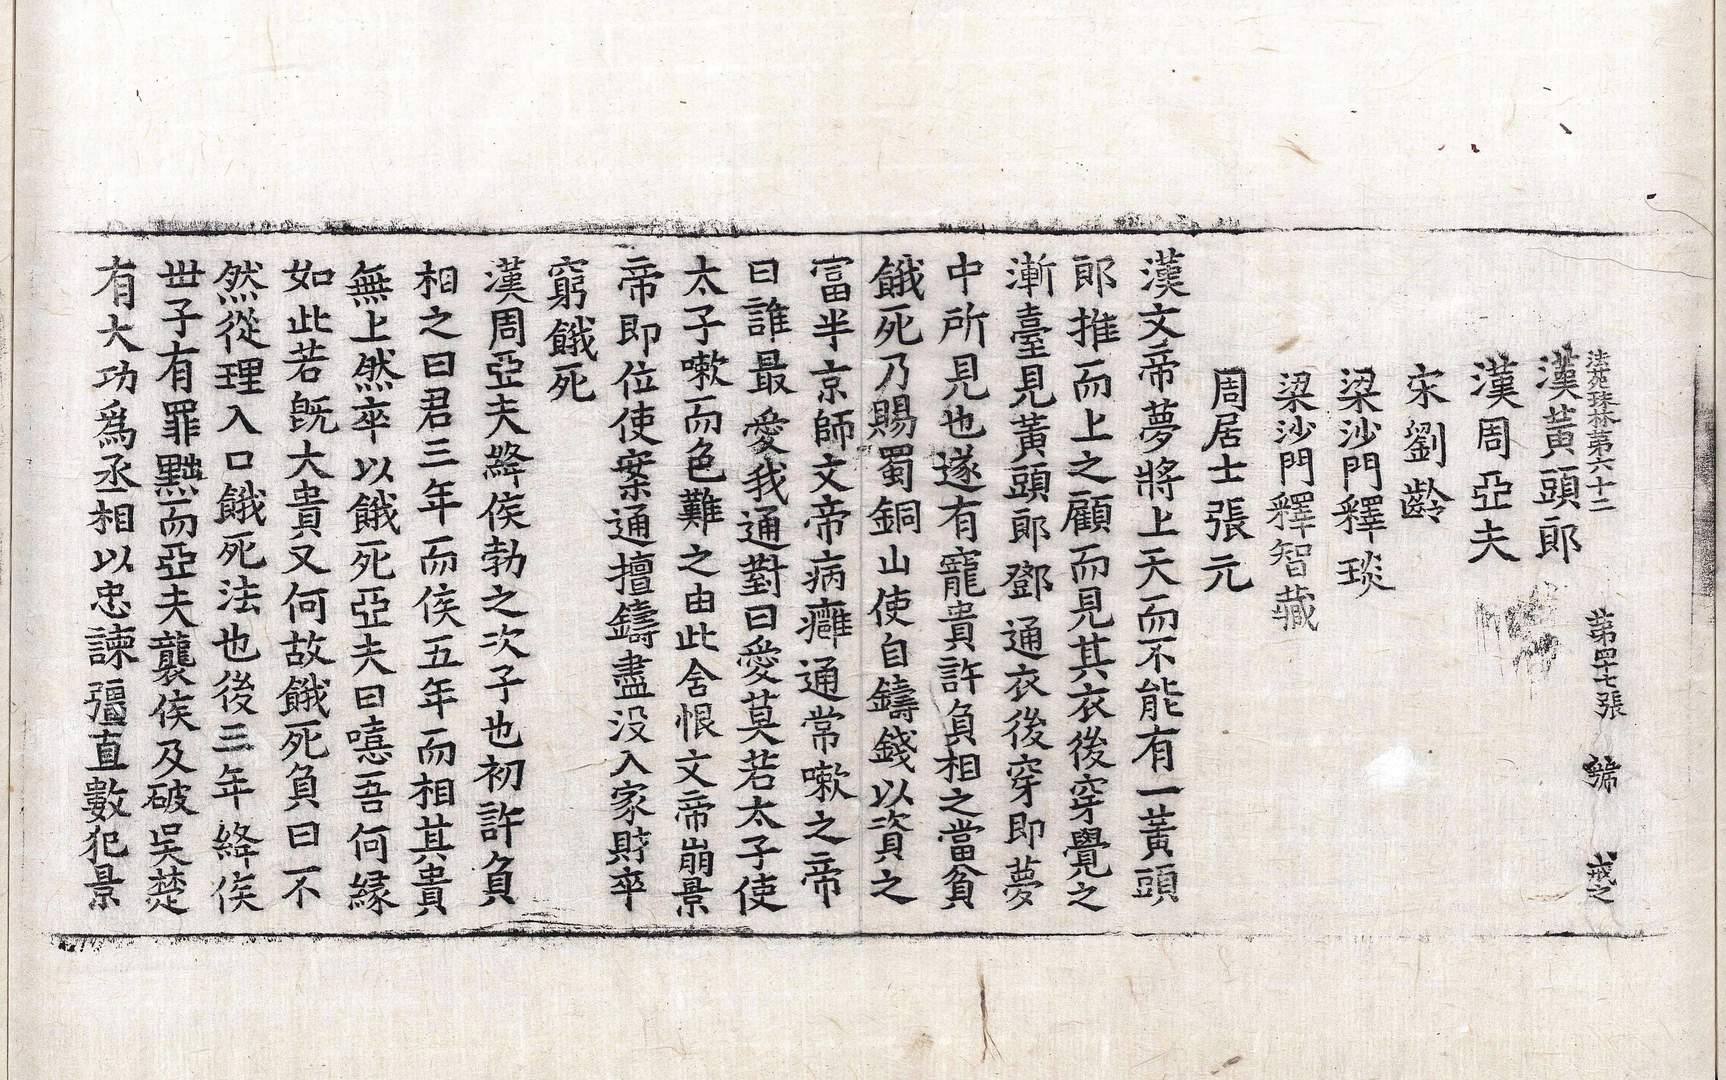 法苑珠林第六十二 第四十七張 戒之
漢黃頭郎
漢周亞夫
宋劉齡
梁沙門釋琰
梁沙門釋智藏
周居士張元
漢文帝夢將上天而不能有一黃頭
郎推而上之顧而見其衣後穿覺之
漸臺見黃頭郎鄧通衣後穿即夢
中所見也遂有寵貴許負相之當貧
餓死乃賜蜀銅山使自鑄錢以資之
富半京師文帝病癰通常嗽之帝
曰誰最愛我通對曰愛莫若太子使
太子嗽而色難之由此含恨文帝崩景
帝即位使案通擅鑄盡没入家財卒
窮餓死
漢周亞夫絳侯勃之次子也初許負
相之曰君三年而侯五年而相其貴
無上然卒以餓死亞夫曰嘻吾何緣
如此若旣大貴又何故餓死負曰不
然從理入口餓死法也後三年絳侯
世子有罪黜而亞夫襲侯及破吳楚
有大功爲丞相以忠諫彊直數犯景